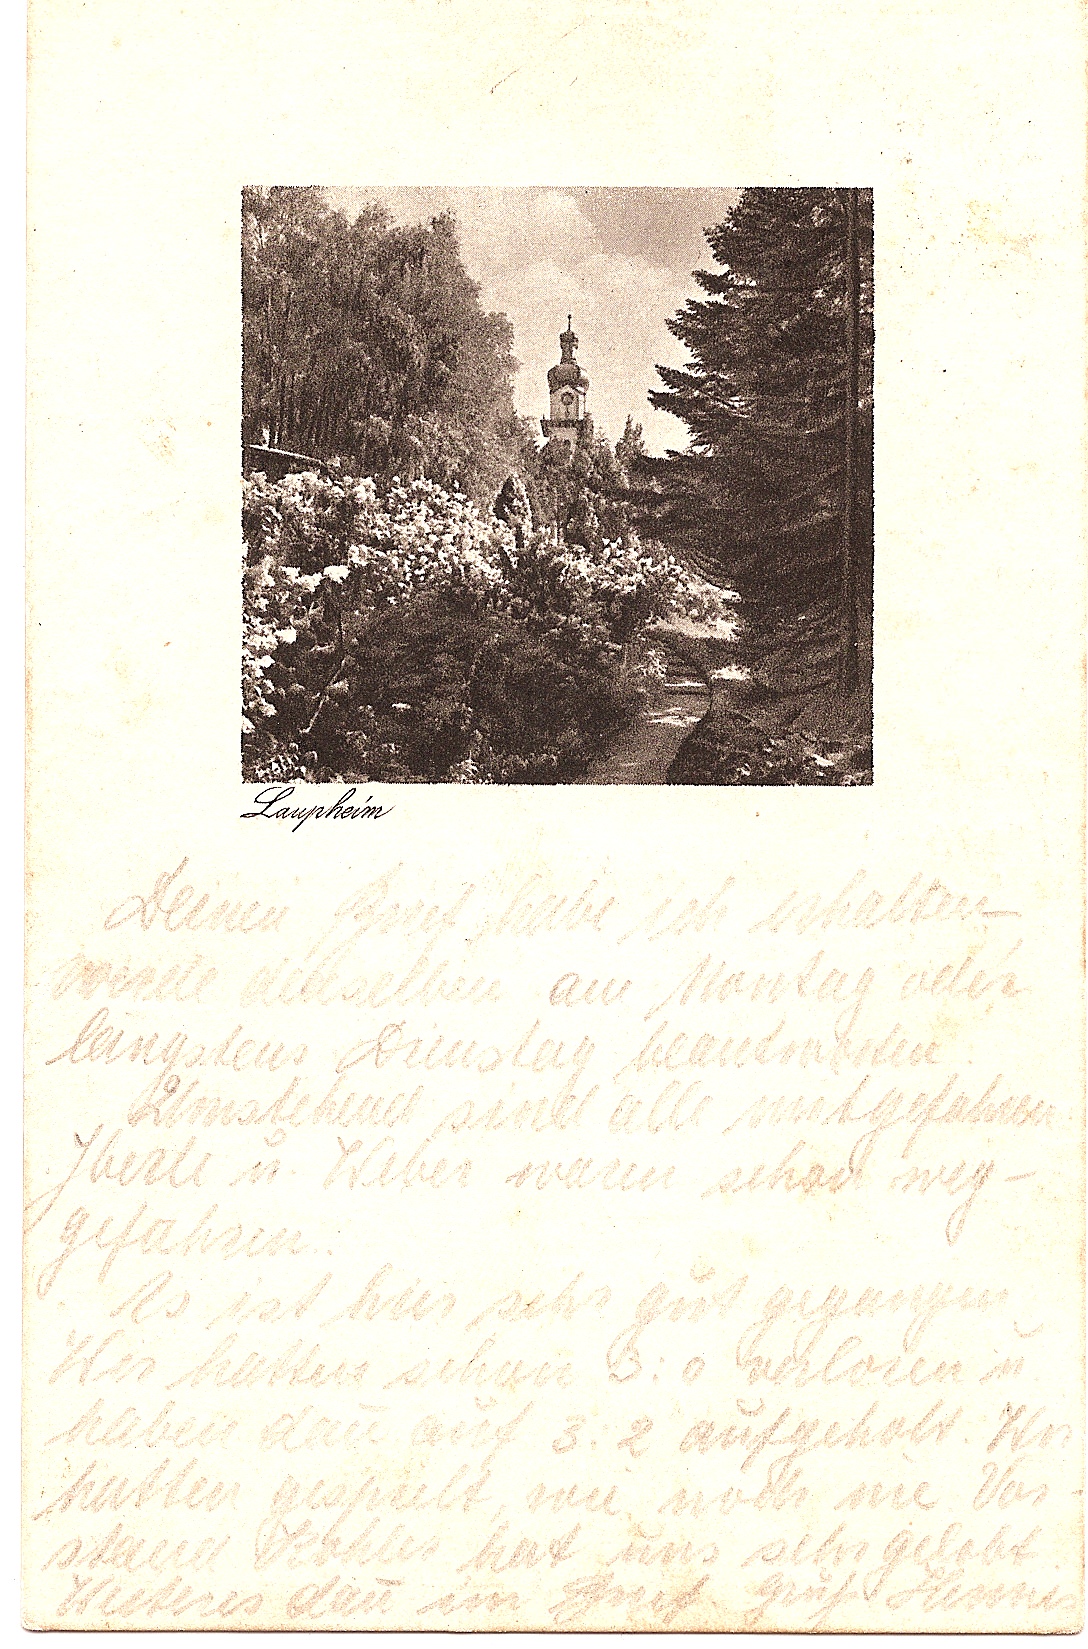 Laupheim
Deinen Brief habe ich erhalten
werde denselben am Montag oder
längstens Dienstag beantworten.
Umstehend sind alle mitgefahren
u. Weber waren schon weg-
gefahren.
Es ist hier sehr gut gegangen
Wir hatten schon 3:0 verloren u.
haben dann auf 3:2 aufgeholt. Wir
hatten gespielt, wie noch nie. Vor-
stand hat uns sehr gelobt
Weiteres dann im Brief. Gruß